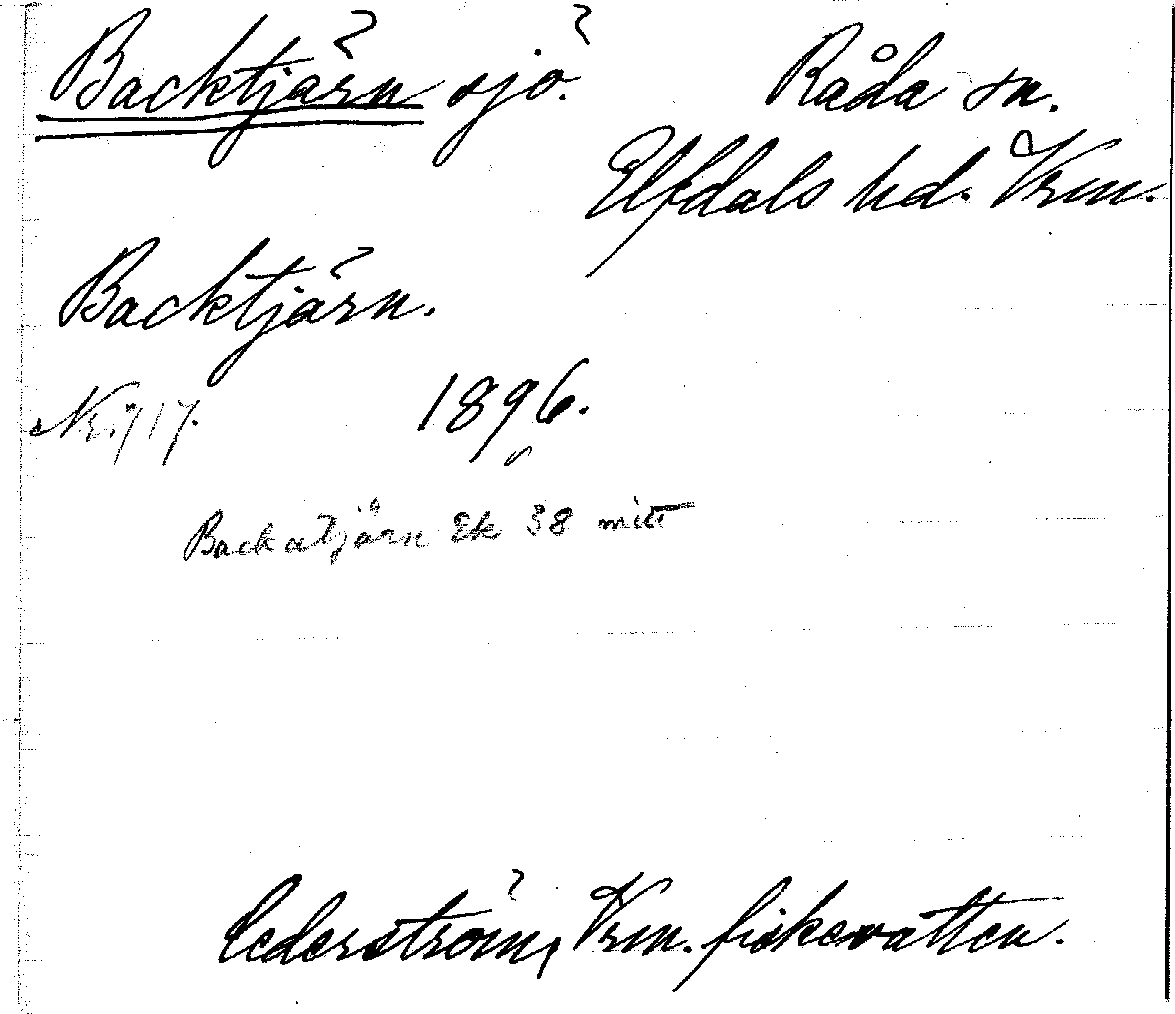 Backtjärn sjö. Råda sn.
Elfdals hd. Vrm.
Backtjärn.
Nr. 717. 1896.
Backatjärn Ek 38 mitt
Cederström, Vrm. fiskevatten.